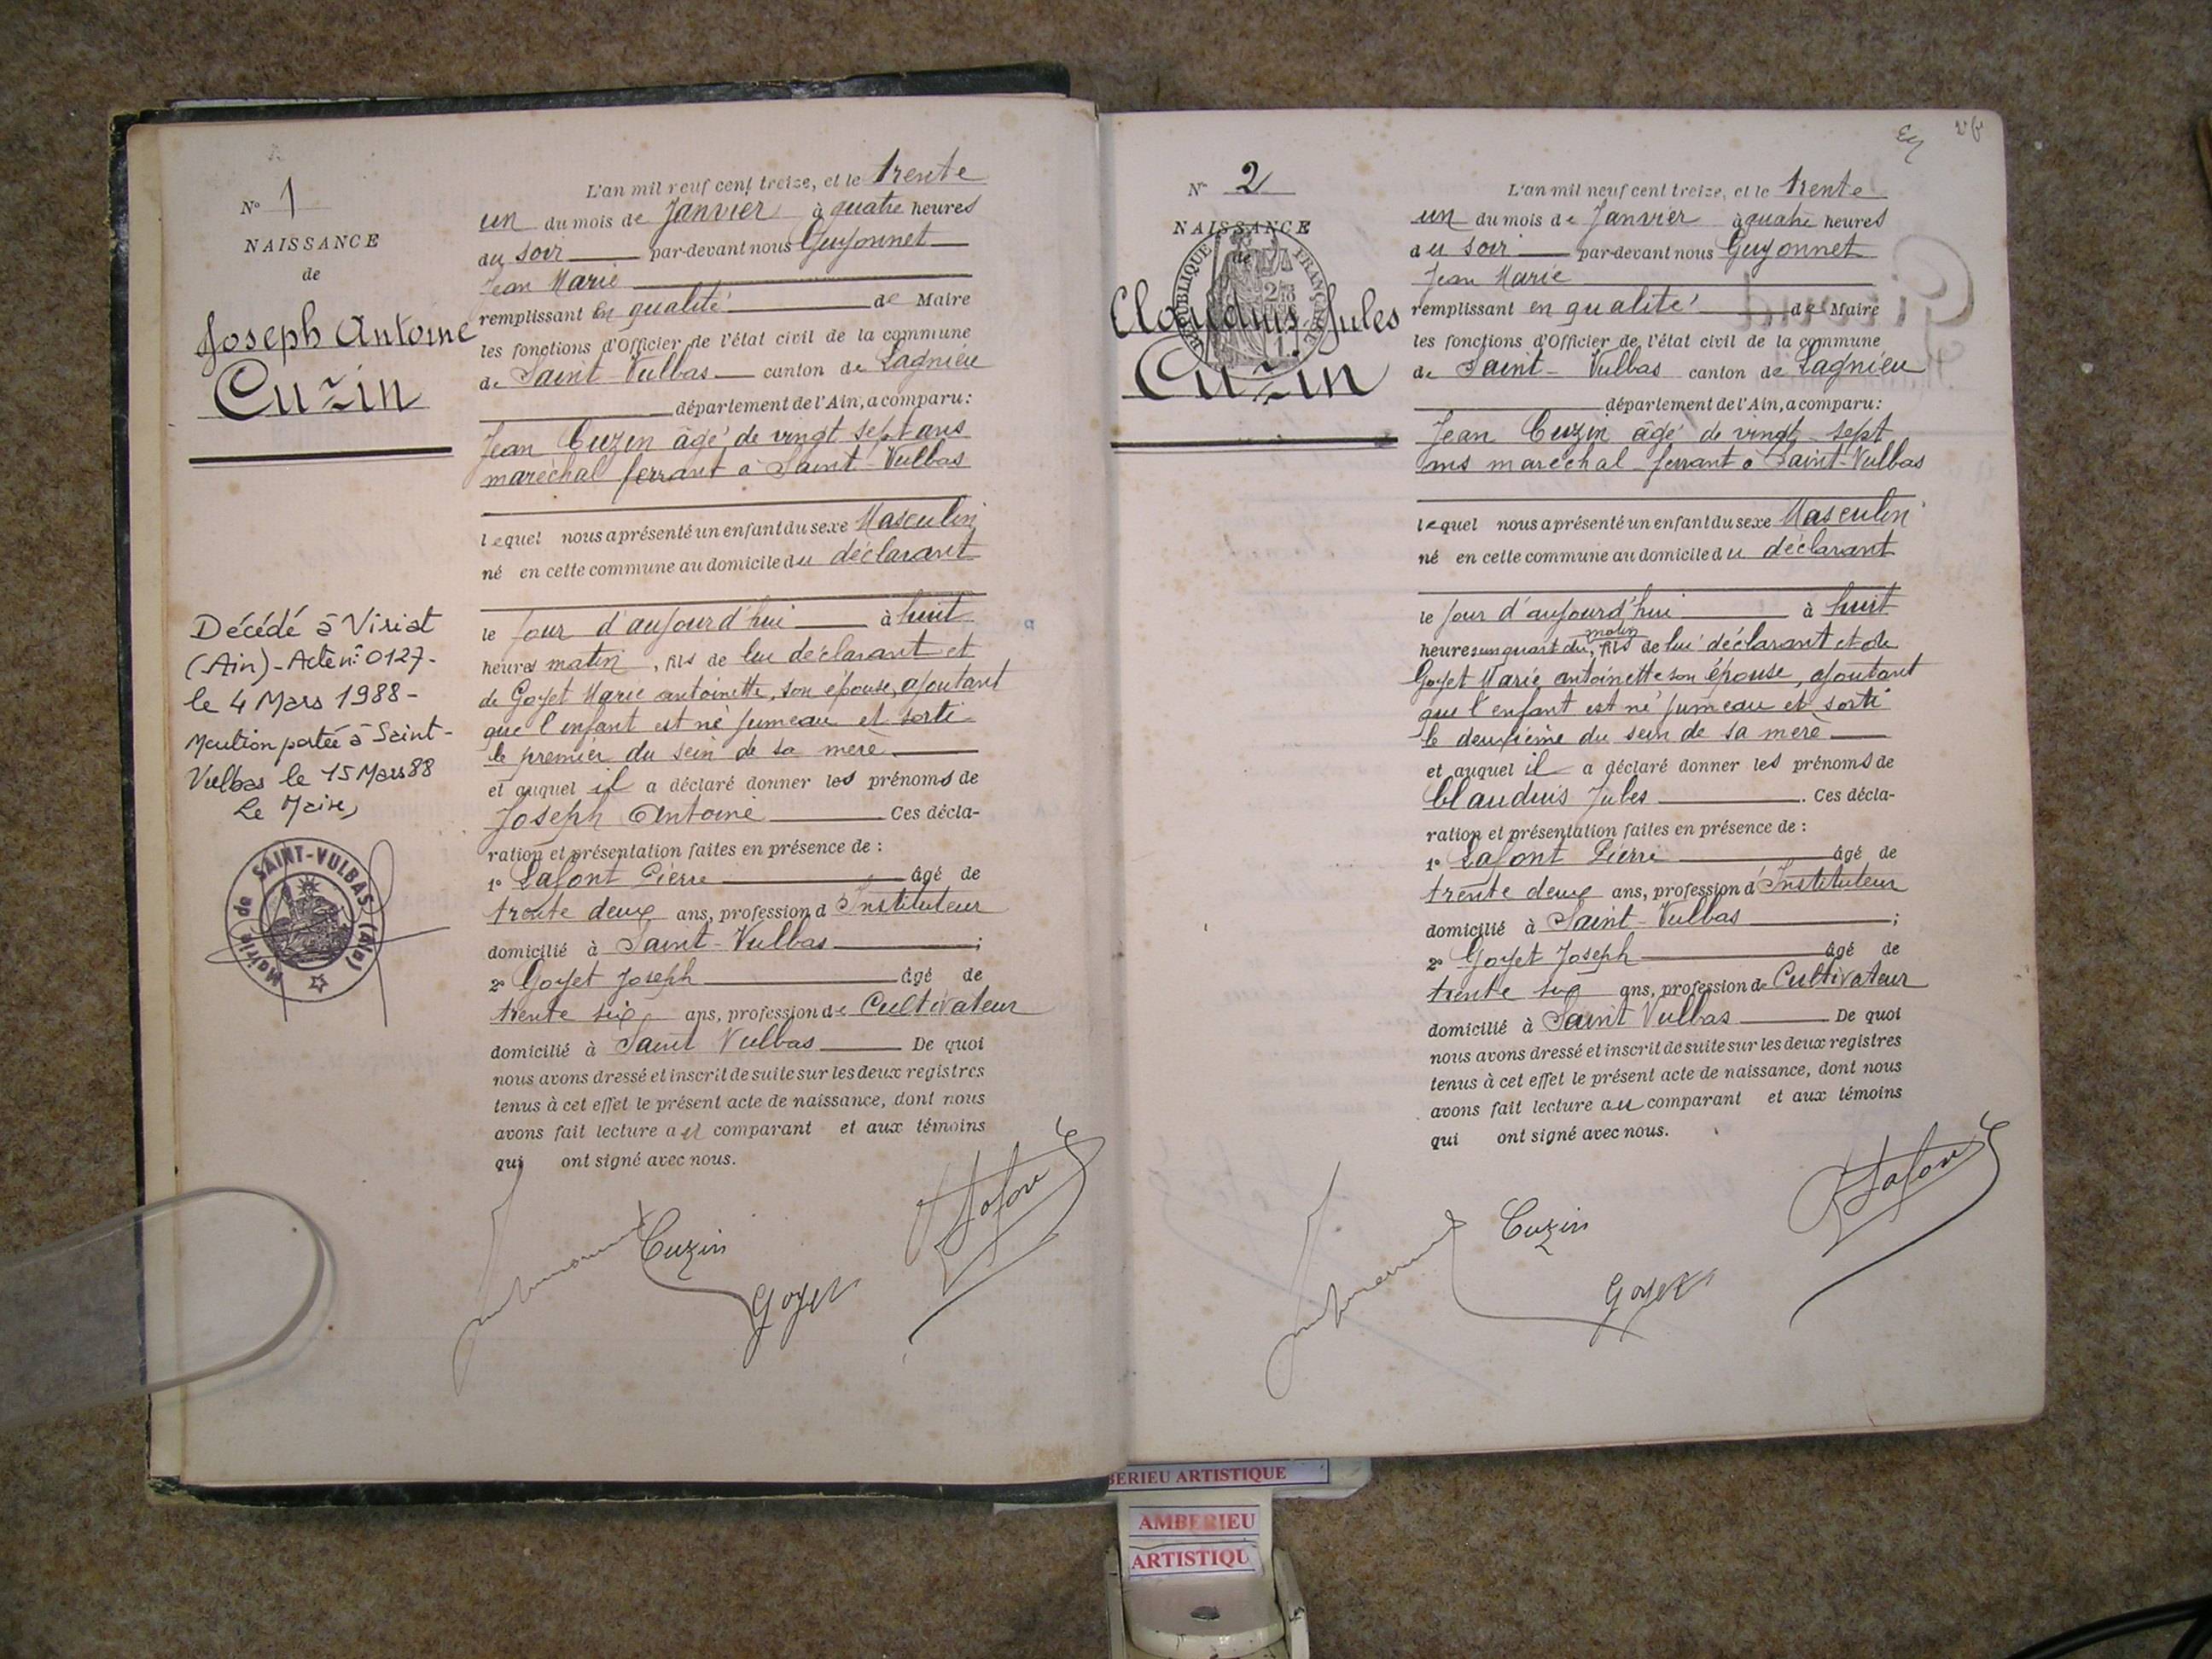 N° 1
NAISSANCE
de
Joseph Antoine
Cuzin
Décédé à Viriat
(Ain) - Acte n° 0127 -
le 4 Mars 1988 -
Mention portée à Saint-
Vulbas le 15 Mars 88
Le Maire,
Mairie de SAINT-VULBAS (Ain)
L'an mil neuf cent treize, et le trente
un du mois de Janvier à quatre heures
du soir par-devant nous Guyonnet
Jean Marie
remplissant en qualité de Maire
les fonctions d'Officier de l'état civil de la commune
de Saint Vulbas canton de Lagnieu
département de l'Ain, a comparu :
Jean Cuzin âgé de vingt sept ans
maréchal ferrant à Saint-Vulbas
lequel nous a présenté un enfant du sexe Masculin
né en cette commune au domicile du déclarant
le jour d'aujourd'hui à huit
heures matin, fils de lui déclarant et
de Goyet Marie antoinette, son épouse, ajoutant
que l'enfant est né jumeau et sorti
le premier du sein de sa mère
et auquel il a déclaré donner les prénoms de
Joseph Antoine Ces décla-
ration et présentation faites en présence de :
1° Lafont Pierre âgé de
trente deux ans, profession d'Instituteur
domicilié à Saint-Vulbas ;
2° Goyet Joseph âgé de
trente six ans, profession de Cultivateur
domicilié à Saint Vulbas De quoi
nous avons dressé et inscrit de suite sur les deux registres
tenus à cet effet le présent acte de naissance, dont nous
avons fait lecture au comparant et aux témoins
qui ont signé avec nous.
Cuzin
Goyet
Lafont
N° 2
NAISSANCE
de
Claudius Jules
Cuzin
RÉPUBLIQUE FRANÇAISE
L'an mil neuf cent treize, et le trente
un du mois de Janvier à quatre heures
du soir par-devant nous Guyonnet
Jean Marie
remplissant en qualité de Maire
les fonctions d'Officier de l'état civil de la commune
de Saint-Vulbas canton de Lagnieu
département de l'Ain, a comparu :
Jean Cuzin âgé de vingt sept
ans maréchal-ferrant à Saint-Vulbas
lequel nous a présenté un enfant du sexe Masculin
né en cette commune au domicile du déclarant
le jour d'aujourd'hui à huit
heures un quart du matin, fils de lui déclarant et de
Goyet Marie antoinette son épouse, ajoutant
que l'enfant est né jumeau et sorti
le deuxième du sein de sa mère
et auquel il a déclaré donner les prénoms de
Claudius Jules . Ces décla-
ration et présentation faites en présence de :
1° Lafont Pierre âgé de
trente deux ans, profession d'Instituteur
domicilié à Saint-Vulbas ;
2° Goyet Joseph âgé de
trente six ans, profession de Cultivateur
domicilié à Saint Vulbas De quoi
nous avons dressé et inscrit de suite sur les deux registres
tenus à cet effet le présent acte de naissance, dont nous
avons fait lecture au comparant et aux témoins
qui ont signé avec nous.
Cuzin
Goyet
Lafont
BERIEU ARTISTIQUE
AMBERIEU
ARTISTIQU